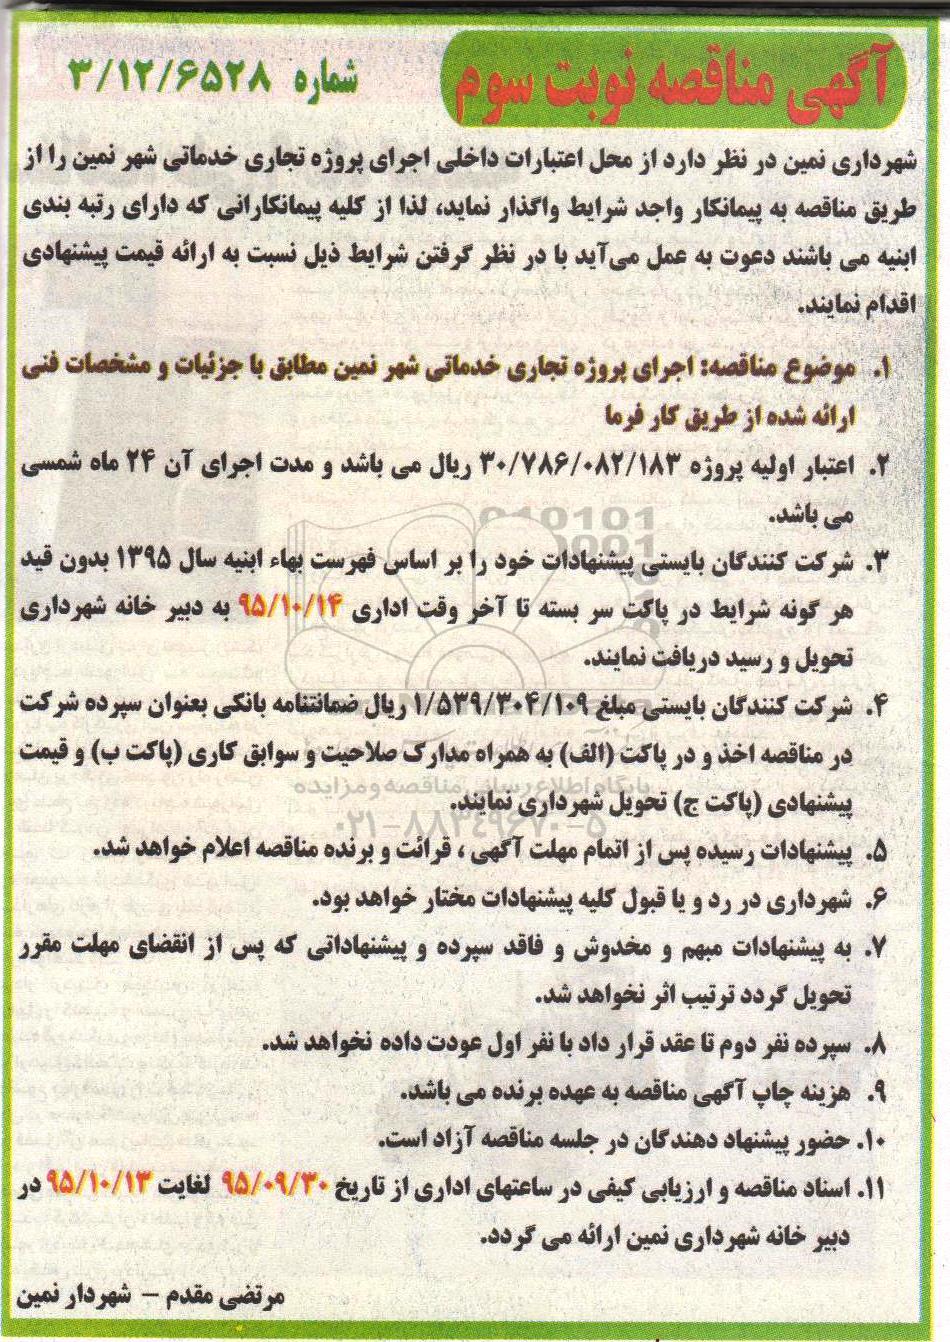 آگهی مناقصه نوبت سوم
شماره ۳/۱۲/۶۵۲۸
شهرداری نمین در نظر دارد از محل اعتبارات داخلی اجرای پروژه تجاری خدماتی شهر نمین را از
طریق مناقصه به پیمانکار واجد شرایط واگذار نماید، لذا از کلیه پیمانکارانی که دارای رتبه بندی
ابنیه می باشند دعوت به عمل می‌آید با در نظر گرفتن شرایط ذیل نسبت به ارائه قیمت پیشنهادی
اقدام نمایند.
۱. موضوع مناقصه: اجرای پروژه تجاری خدماتی شهر نمین مطابق با جزئیات و مشخصات فنی
ارائه شده از طریق کار فرما
۲. اعتبار اولیه پروژه ۳۰/۷۸۶/۰۸۲/۱۸۳ ریال می باشد و مدت اجرای آن ۲۴ ماه شمسی
می باشد.
۳. شرکت کنندگان بایستی پیشنهادات خود را بر اساس فهرست بهاء ابنیه سال ۱۳۹۵ بدون قید
هر گونه شرایط در پاکت سر بسته تا آخر وقت اداری ۹۵/۱۰/۱۴ به دبیر خانه شهرداری
تحویل و رسید دریافت نمایند.
۴. شرکت کنندگان بایستی مبلغ ۱/۵۳۹/۳۰۴/۱۰۹ ریال ضمانتنامه بانکی بعنوان سپرده شرکت
در مناقصه اخذ و در پاکت (الف) به همراه مدارک صلاحیت و سوابق کاری (پاکت ب) و قیمت
پایگاه اطلاع رسانی مناقصه و مزایده
پیشنهادی (پاکت ج) تحویل شهرداری نمایند.
۰۲۱-۸۸۳۴۹۶۷۰-۵
۵. پیشنهادات رسیده پس از اتمام مهلت آگهی ، قرائت و برنده مناقصه اعلام خواهد شد.
۶. شهرداری در رد و یا قبول کلیه پیشنهادات مختار خواهد بود.
۷. به پیشنهادات مبهم و مخدوش و فاقد سپرده و پیشنهاداتی که پس از انقضای مهلت مقرر
تحویل گردد ترتیب اثر نخواهد شد.
۸. سپرده نفر دوم تا عقد قرار داد با نفر اول عودت داده نخواهد شد.
۹. هزینه چاپ آگهی مناقصه به عهده برنده می باشد.
۱۰. حضور پیشنهاد دهندگان در جلسه مناقصه آزاد است.
۱۱. اسناد مناقصه و ارزیابی کیفی در ساعتهای اداری از تاریخ ۹۵/۰۹/۳۰ لغایت ۹۵/۱۰/۱۳ در
دبیر خانه شهرداری نمین ارائه می گردد.
مرتضی مقدم – شهردار نمین